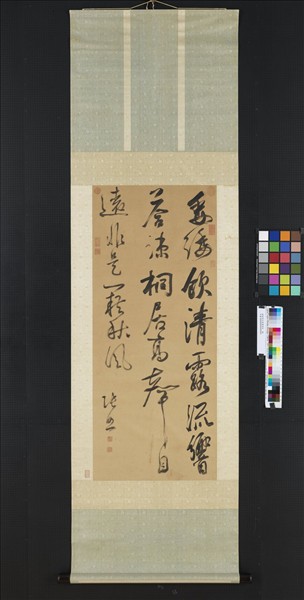 垂緌飲清露流響
疎桐居高聲自
遠非是藉秋風